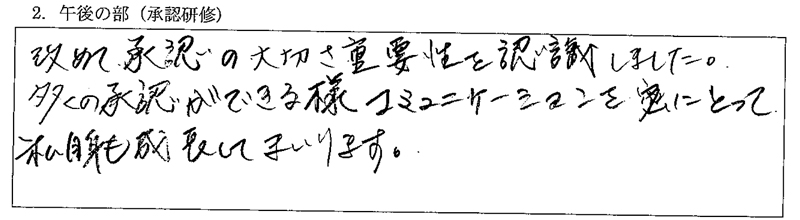 2. 午後の部（承認研修）
改めて承認の大切さ重要性を認識しました。
多くの承認ができる様コミュニケーションを密にとって
私自身も成長してまいります。